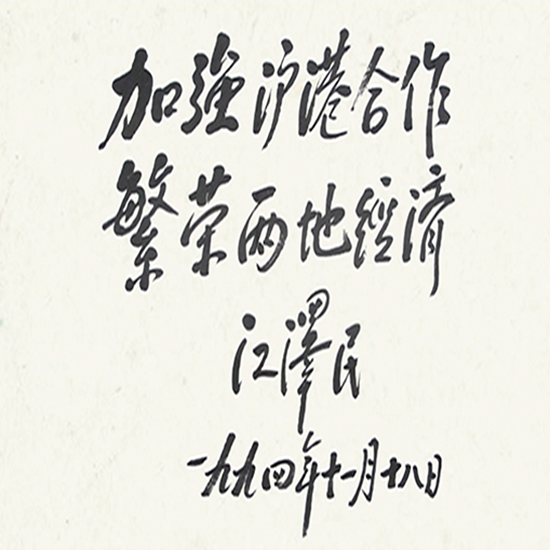 加強沪港合作
繁荣两地經濟
江澤民
一九九四年十一月十八日